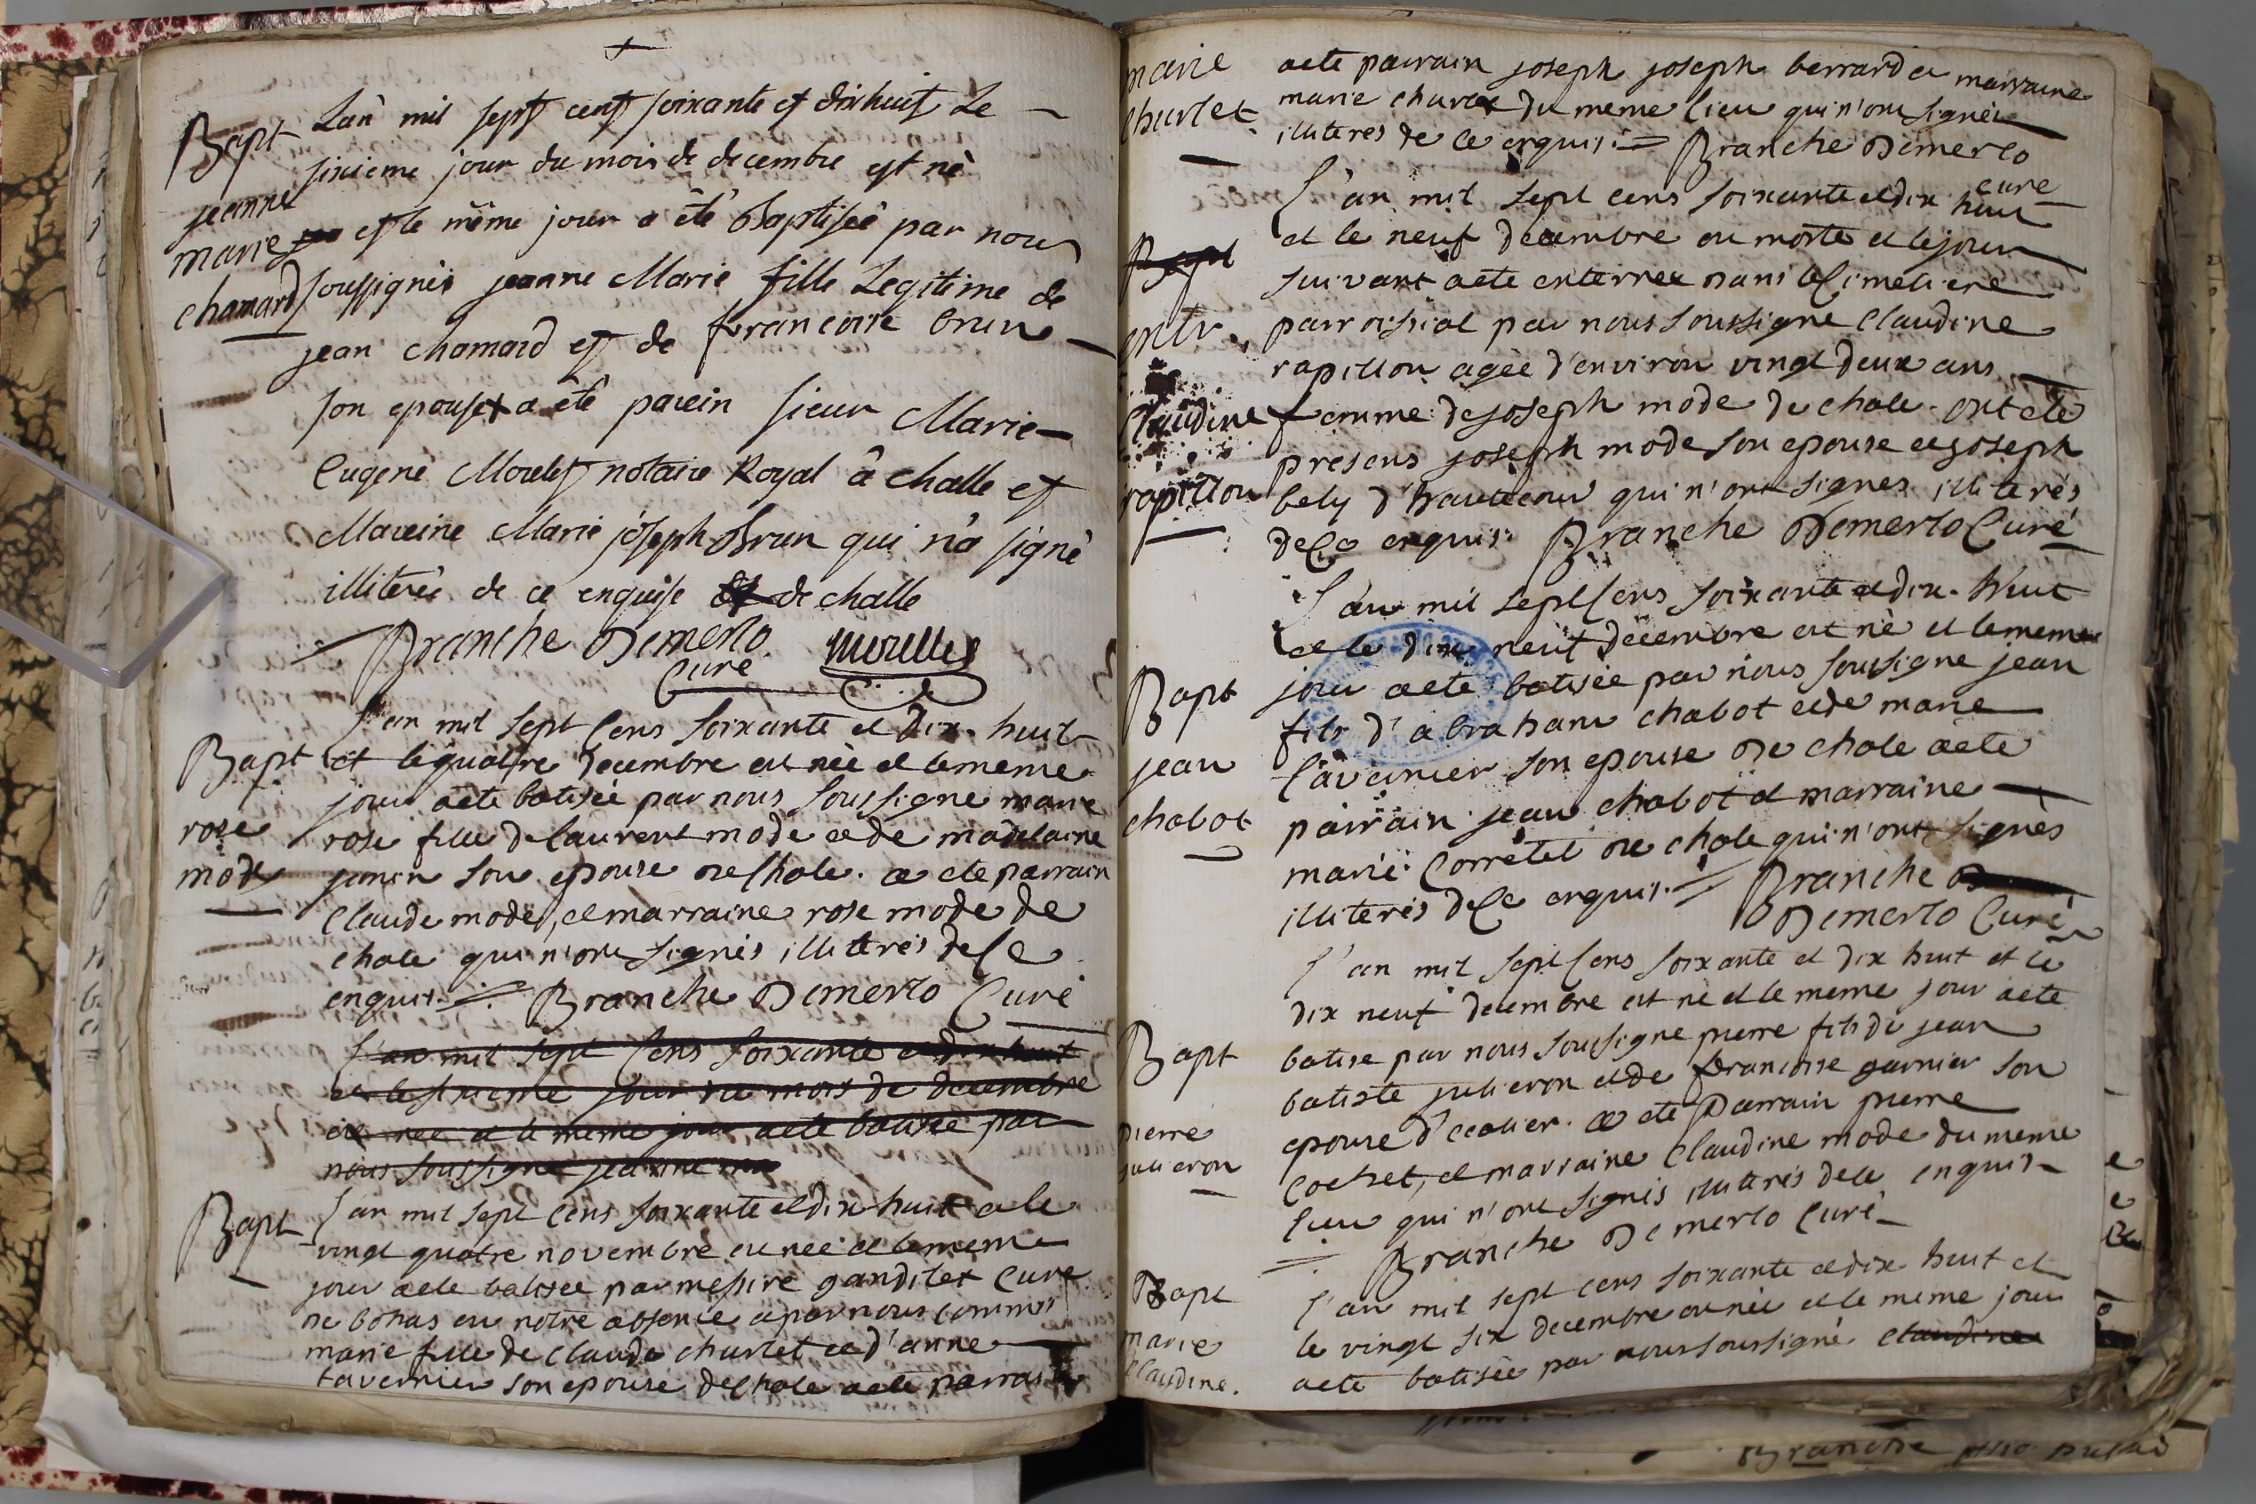 Bapt
jeanne
marie
chamard
Lan mil sept cent soixante et dixhuit Le
sixieme jour du mois de decembre est né
et le même jour a êtê Baptiseé par nous
soussignés jeanne Marie fille Legitime de
jean chamard et de francoise brun
son epouse a êtê parein sieur Marie
Eugene Morelet notaire Royal â challe et
Mareine Marie joseph Brun qui n'a signé
illiterée de ce enquise de challe
Branche Demerlo
Curé
Bapt
rose
mode
L'an mil sept Cens soixante et Dix-huit
et lequatre decembre est née et lememe
jour aete batisée par nous soussigne marie
rose fille delaurent mode et de madelaine
son epouse de chale. a ete parrain
Claude mode, et marraine rose mode de
chale qui n'ont signés illiterés de ce
enquis. Branche Demerlo Curé
L'an mil sept Cens soixante et dix huit
et le sixieme jour du mois de decembre
est née et le meme jour aete batisée par
nous soussigne jeanne
Bapt
L'an mil sept Cens soixante et dix huit et le
vingt quatre novembre est née et lememe
jour aete batisée par messire ganditet Curé
de bohas en notre absence et par nous commis
marie fille de claude charlet et d'anne
tavernier son epouse de chale aete parrain
marie
charlet
aete pairain joseph joseph berrard et marraine
marie charlet du meme lieu qui n'ont signés
illiteres de ce enquis. Branche Demerlo
Curé
Bapt
entr.
Claudine
rapillon
L'an mil sept cens soixante et dix huit
et le neuf decembre est morte et lejour
suivant aete enterreé dans le Cimetiere
parroissial par nous soussigne Claudine
rapillon agée d'environ vingt deux ans
femme de joseph mode de chale. ont ete
presens joseph mode son epouse et joseph
bely d'hautecour qui n'ont signés illiterés
de Ce enquis. Branche Demerlo Curé
Bapt
jean
chabot
L'an mil sept Cens soixante et dix-huit
et le dix neuf decembre est né et lememe
jour aete batisée par nous sousigne jean
fils d'abraham chabot et de marie
tavernier son epouse de chale aete
pairain jean chabot et marraine
marie Corretet de chale qui n'ont signés
illiterés de Ce enquis. Branche D
Demerlo Curé
Bapt
pierre
julieron
L'an mil sept Cens soixante et dix huit et le
dix neuf decembre est né et le meme jour aete
batise par nous sousigne pierre fils de jean
batiste julieron et de francoise garnier son
epouse d'ecolier. a ete parrain pierre
Cochet, et marraine Claudine mode du meme
lieu qui n'ont signés illiterés de ce enquis
Branche Demerlo Curé
Bapt
marie
Claudine.
L'an mil sept cens soixante et dix huit et
le vingt six decembre est née et le meme jour
aete batisée par nous soussigné claudine
Branche